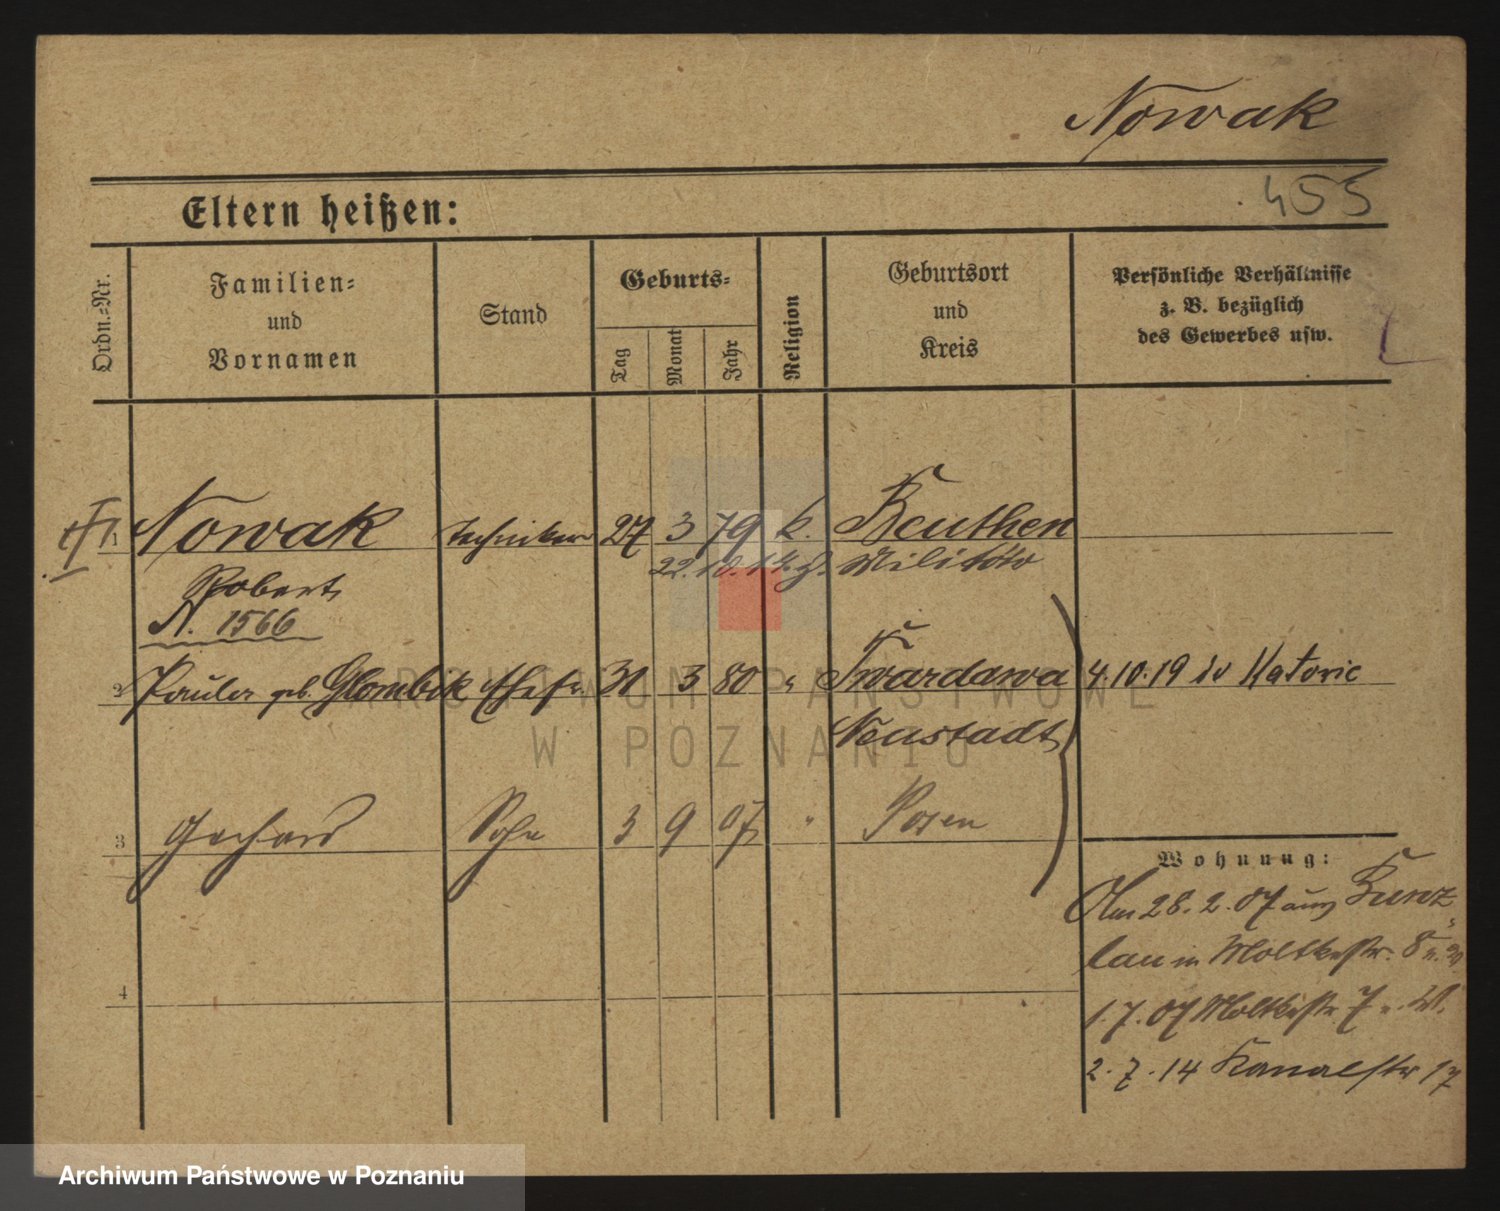 Nowak
455
Eltern heißen:
Ordn.-Nr.
Familien-
und
Vornamen
Stand
Geburts-
Tag
Monat
Jahr
Religion
Geburtsort
und
Kreis
Persönliche Verhältnisse
z. B. bezüglich
des Gewerbes usw.
1 Nowak Techniker 27 3 79 k. Beuthen
22. 10. Militär
Robert
N. 1566
2 Paula geb. Glombik Ehefr. 31 3 80 " Twardawa 4.10.19 in Katowic
Neustadt
3 Gerhard Sohn 3 9 07 " Posen
Wohnung:
Am 28. 2. 07 aus Bunz
lau in Moltkestr. 8
4
1. 7. 07 Moltkestr 7
2. 7. 14 Kanalstr 17
ARCHIWUM PAŃSTWOWE
W POZNANIU
Archiwum Państwowe w Poznaniu